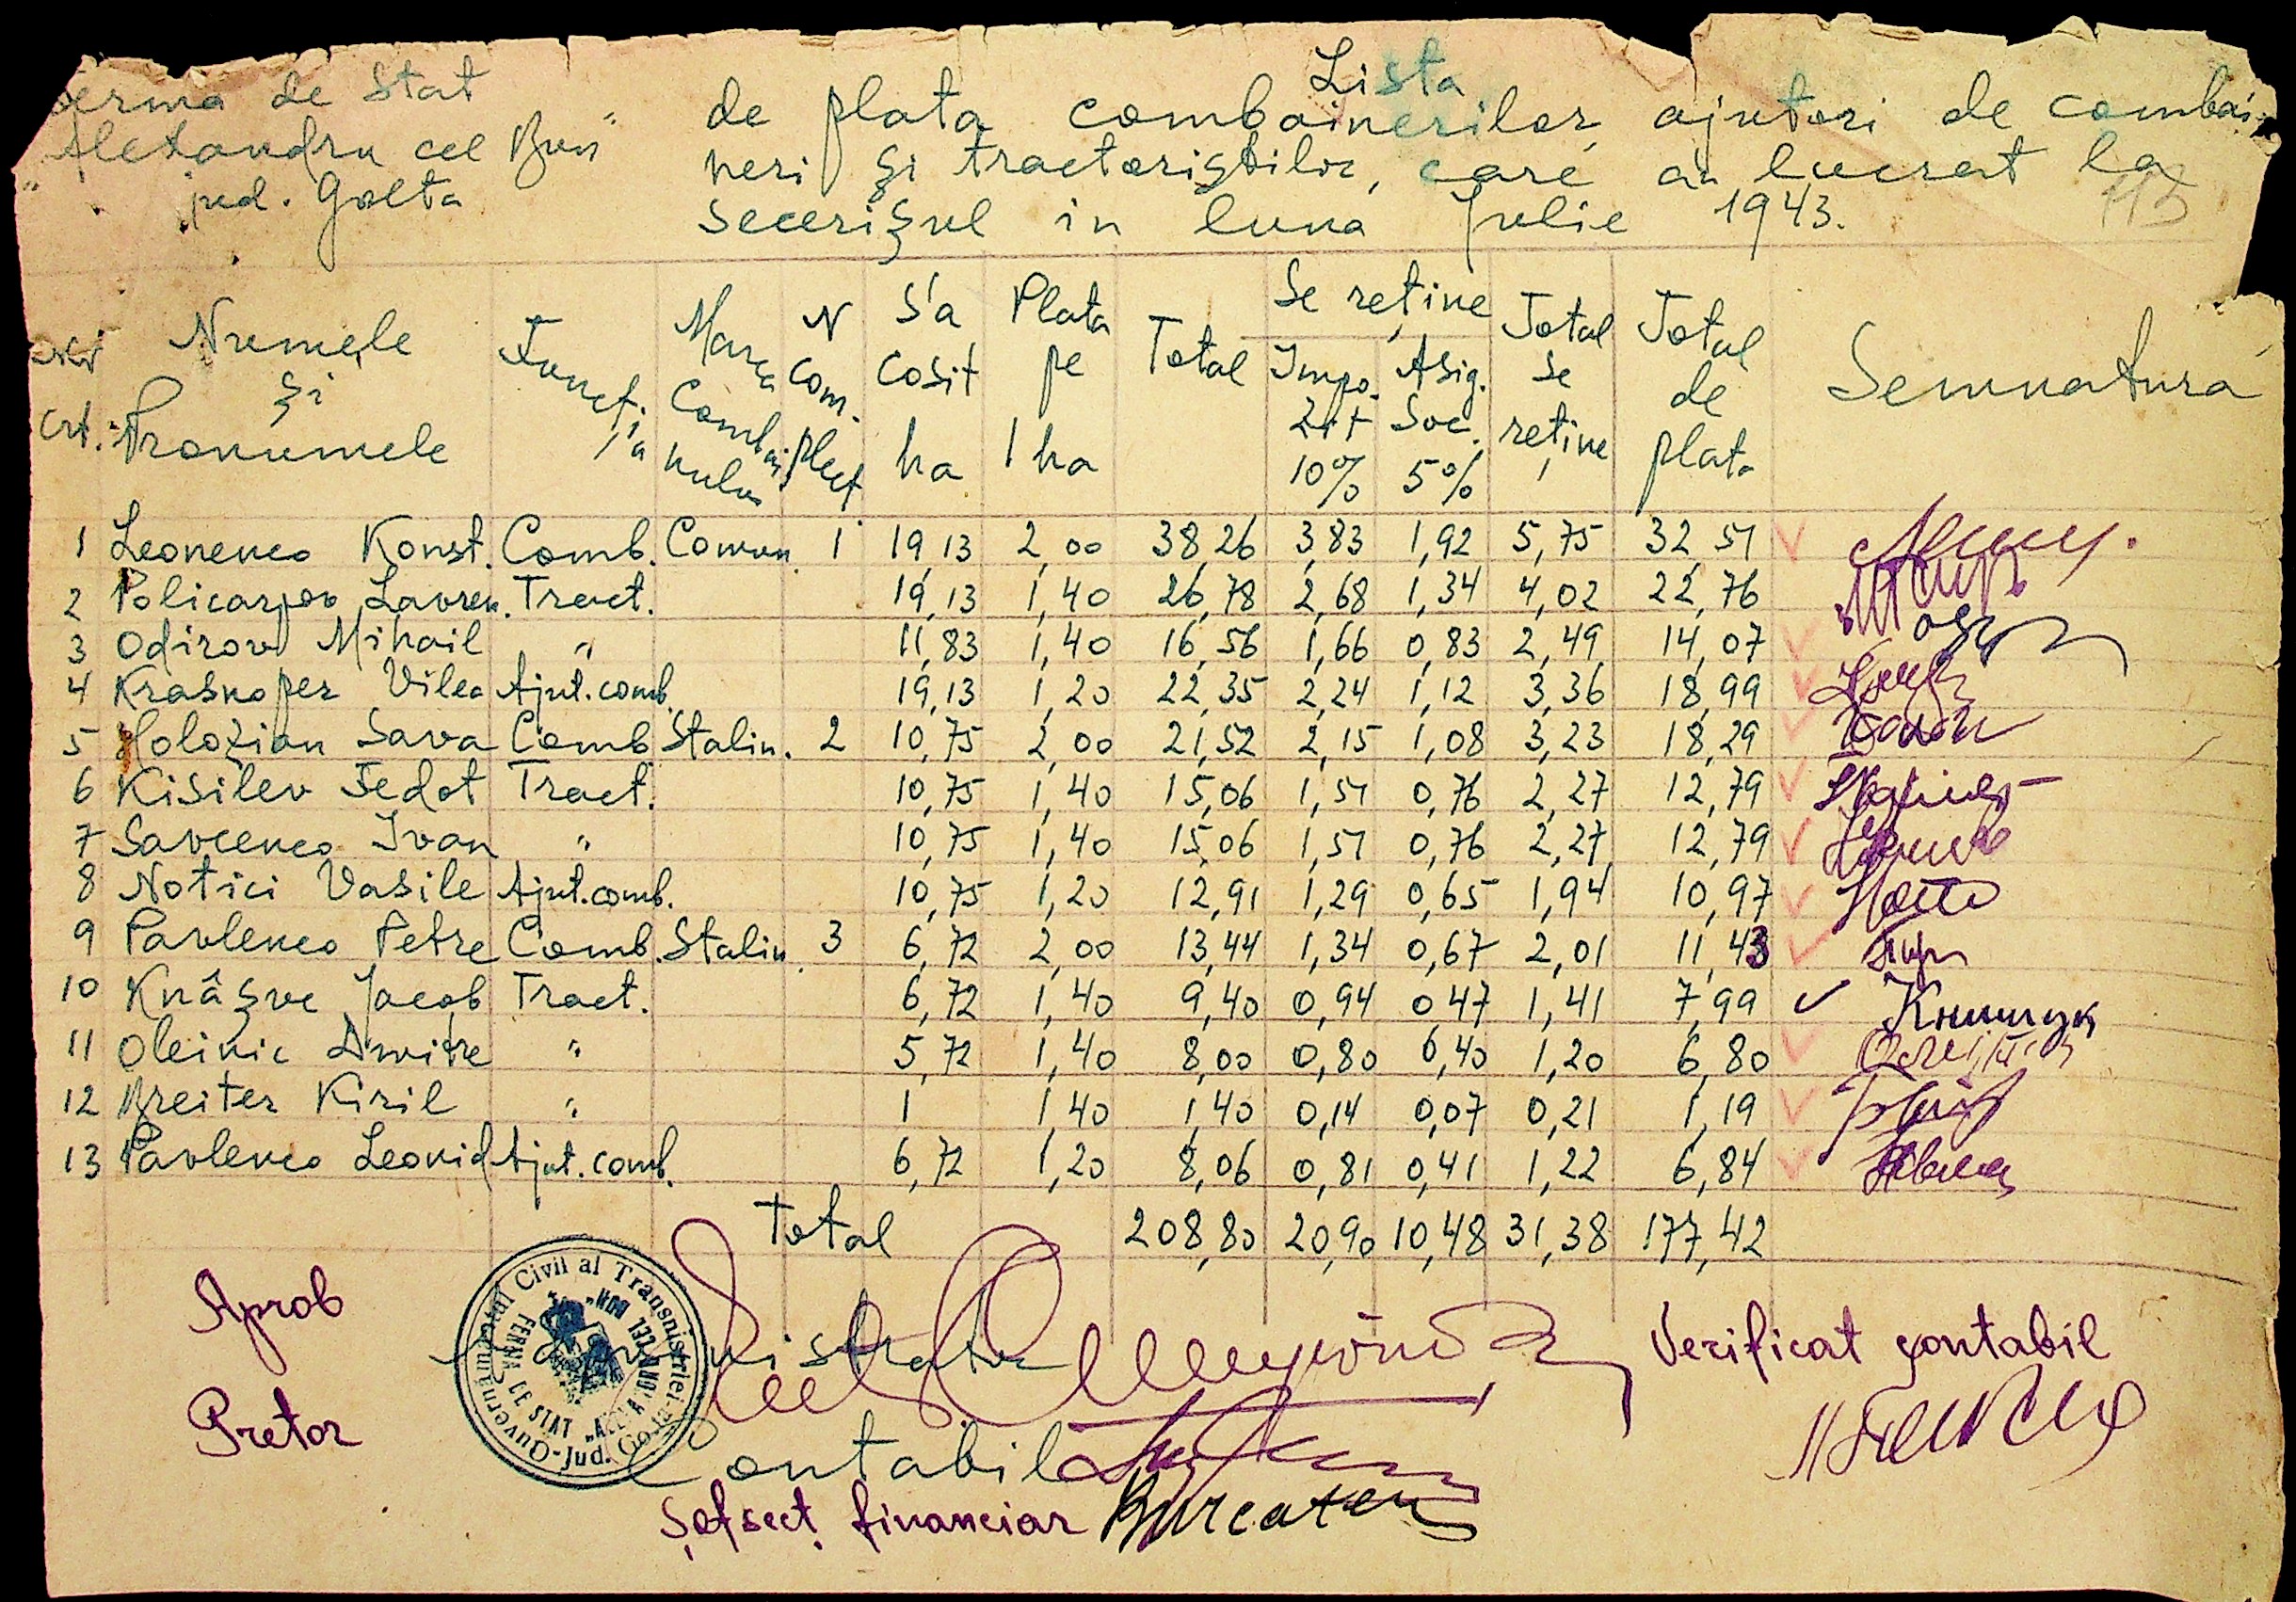 Ferma de Stat
"Alexandru cel Bun"
jud. Golta
113
Lista
de plata combainerilor, ajutori de combai
neri și tractoriștilor, care au lucrat la
secerișul in luna Julie 1943.
Nr crt. Numele și Pronumele Funcția Marca Combainului N complect S'a cosit ha Plata pe 1 ha Total Se reține Impo. 10% Asig. Soc. 5% Total se reține Total de plata Semnatura
1 Leonenco Konst. Comb. Comun. 1 19,13 2,00 38,26 3,83 1,92 5,75 32,51
2 Policarpov Lavren. Tract. 19,13 1,40 26,78 2,68 1,34 4,02 22,76
3 Odirov Mihail " 11,83 1,40 16,56 1,66 0,83 2,49 14,07
4 Krasnoper Vilea Ajut.comb. 19,13 1,20 22,35 2,24 1,12 3,36 18,99
5 Holozian Sava Comb. Stalin. 2 10,75 2,00 21,52 2,15 1,08 3,23 18,29
6 Kisilev Fedot Tract. 10,75 1,40 15,06 1,51 0,76 2,27 12,79
7 Savcenco Ivan " 10,75 1,40 15,06 1,51 0,76 2,27 12,79
8 Notici Vasile Ajut.comb. 10,75 1,20 12,91 1,29 0,65 1,94 10,97
9 Pavlenco Petre Comb. Stalin. 3 6,72 2,00 13,44 1,34 0,67 2,01 11,43
10 Knâșuc Jacob Tract. 6,72 1,40 9,40 0,94 0,47 1,41 7,99
11 Oleinic Dmitre " 5,72 1,40 8,00 0,80 0,40 1,20 6,80
12 Breiter Kiril " 1 1,40 1,40 0,14 0,07 0,21 1,19
13 Pavlenco Leonid Ajut.comb. 6,72 1,20 8,06 0,81 0,41 1,22 6,84
Total 208,80 20,90 10,48 31,38 177,42
Aprob
Pretor
Guvernământul Civil al Transnistriei - Jud. Golta
FERMA DE STAT CEL BUN"
Administrator
Contabil
Șef sect. financiar
Verificat contabil